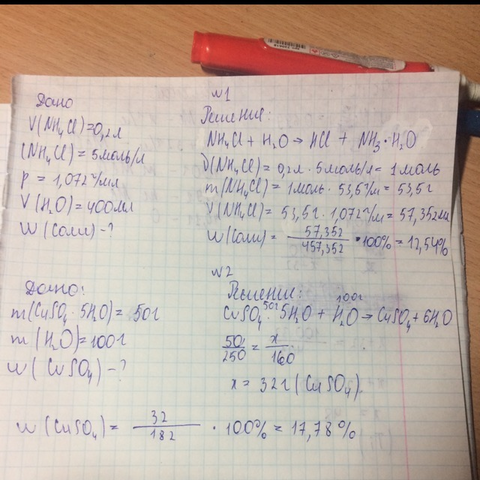 №1
Дано
V(NH₄Cl)=0,2л
C(NH₄Cl) = 5 моль/л
p = 1,072 г/мл
V(H₂O) = 400мл
W(Соли) -?
Решение:
NH₄Cl + H₂O → HCl + NH₃·H₂O
ν(NH₄Cl) = 0,2л · 5 моль/л = 1 моль
m(NH₄Cl) = 1 моль · 53,5 г/м = 53,5 г
V(NH₄Cl) = 53,5 г · 1,072 г/м = 57,352 мл
W(Соли) = 57,352 / 457,352 · 100% = 12,54%
№2
Дано:
m(CuSO₄ · 5H₂O) = 50г
m(H₂O) = 100г
W(CuSO₄) -?
Решение:
50г 100г
CuSO₄ · 5H₂O + H₂O → CuSO₄ + 6H₂O
50/250 = x/160
x = 32г (CuSO₄)
W(CuSO₄) = 32 / 182 · 100% = 17,78%